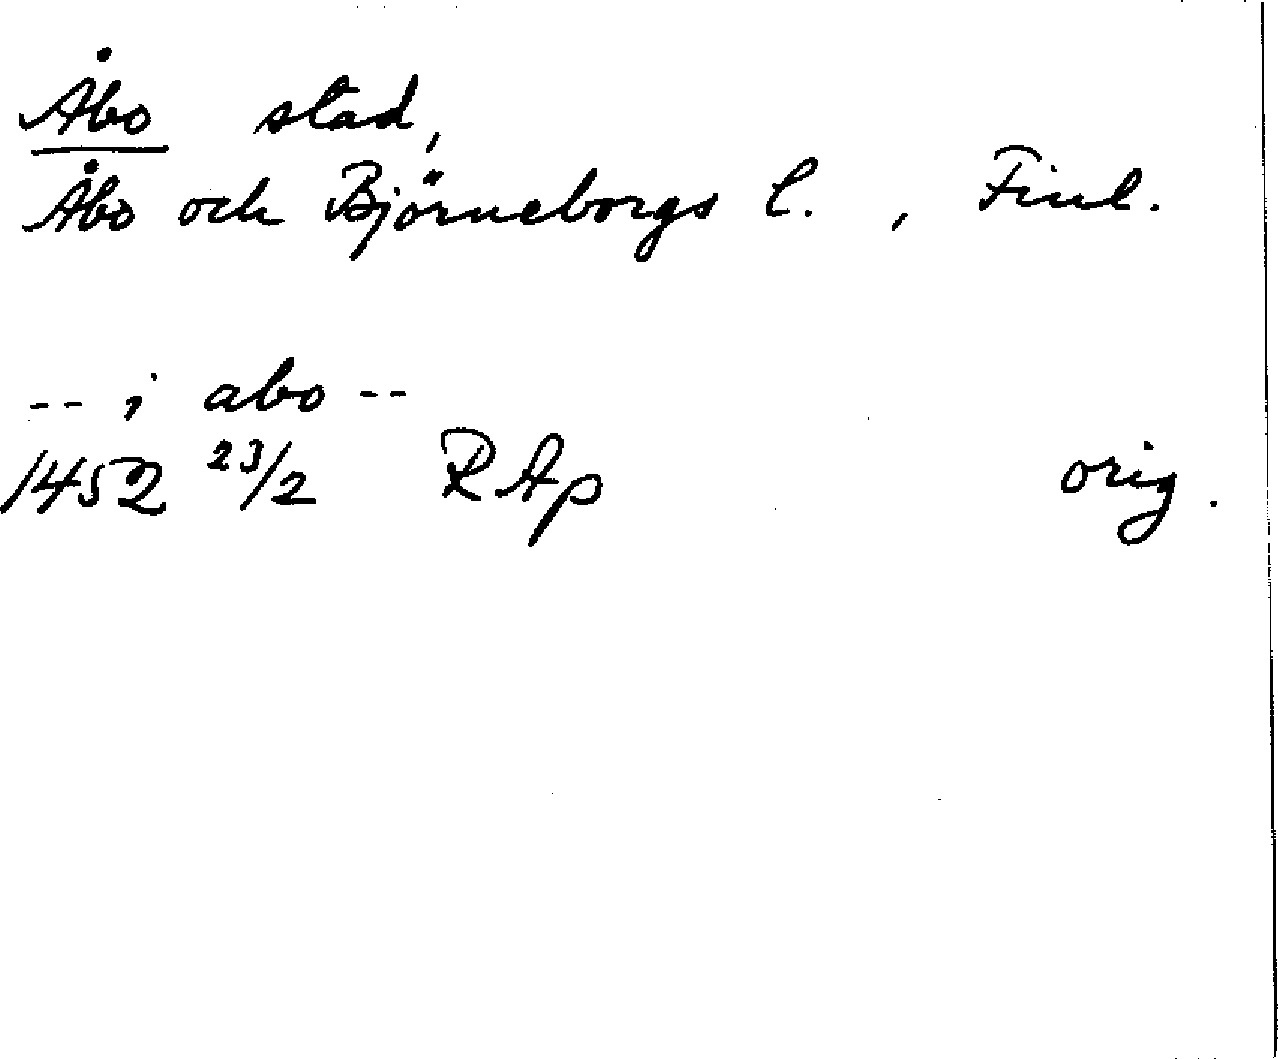 Åbo stad,
Åbo och Björneborgs l. , Finl.
-- i abo --
1452 23/2 RAp orig.